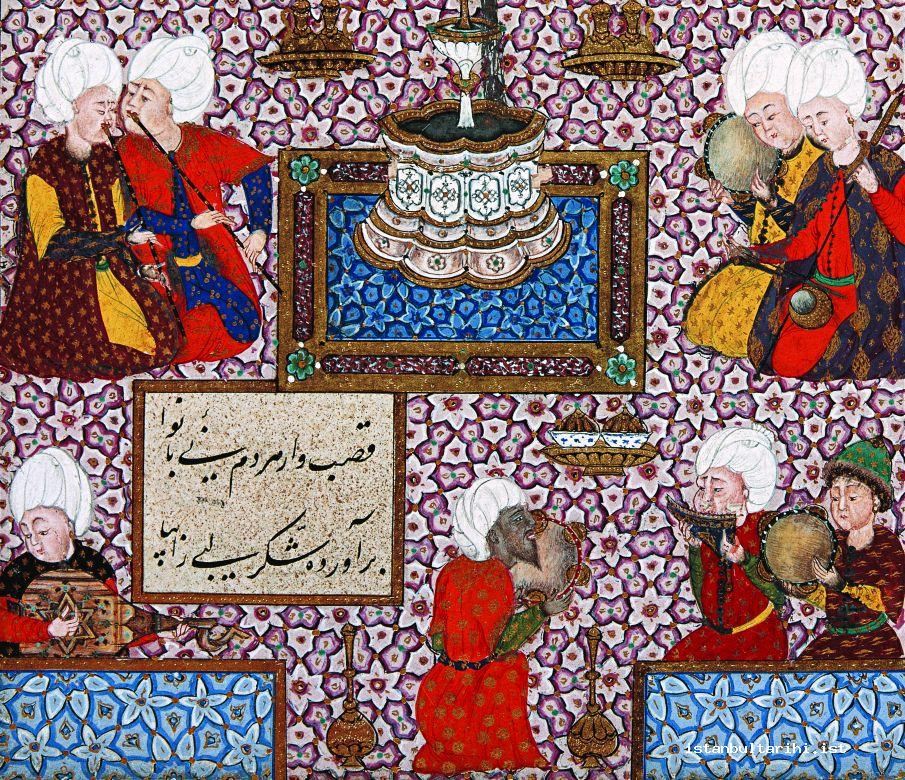 قصب وار هر دم نئی با نوا
بر آورده شکر لبی
istanbultarihi.ist